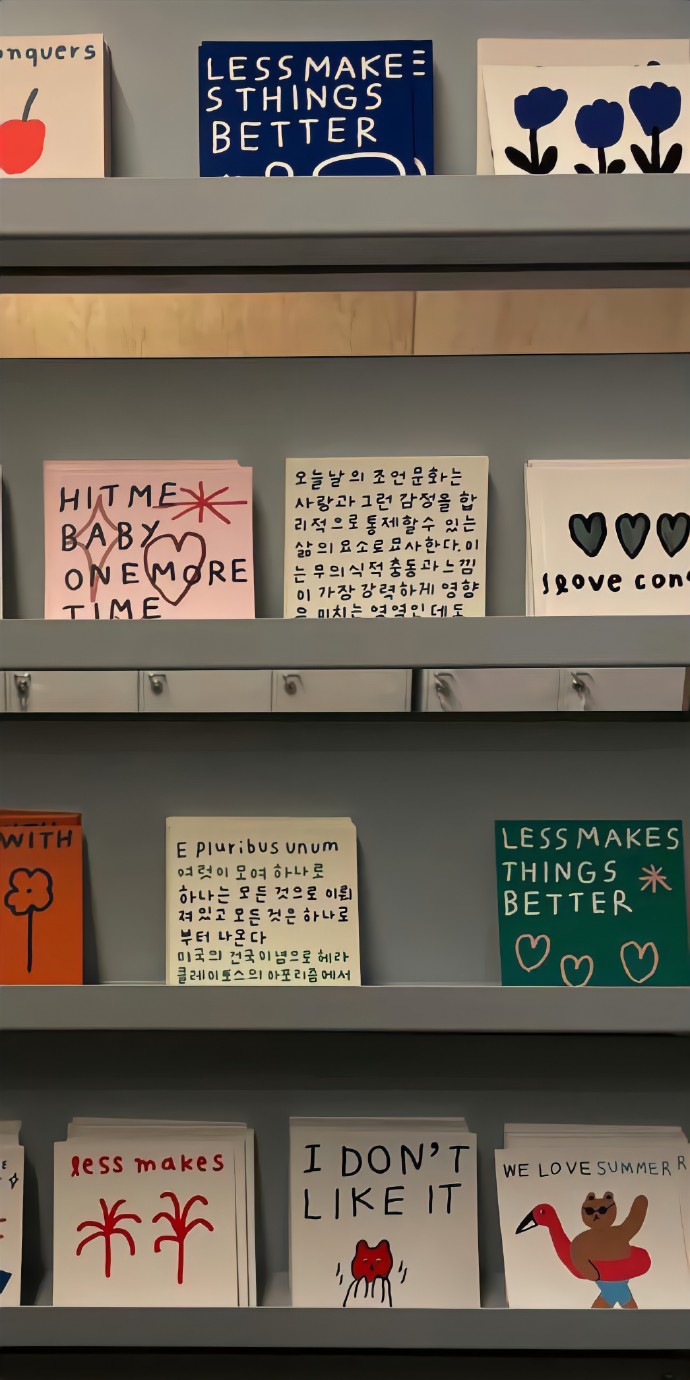 onquers
LESS MAKE
S THINGS
BETTER
HIT ME
BABY
ONE MORE
TIME
오늘날의 조언 문화는
사랑과 그런 감정을 합
리적으로 통제할 수 있는
삶의 요소로 묘사한다. 이
는 무의식적 충동과 느낌
이 가장 강력하게 영향
을 미치는 영역인데도
love con
WITH
E pluribus unum
여럿이 모여 하나로
하나는 모든 것으로 이뤄
져 있고 모든 것은 하나로
부터 나온다
미국의 건국이념으로 헤라
클레이토스의 아포리즘에서
LESS MAKES
THINGS
BETTER
less makes
I DON'T
LIKE IT
WE LOVE SUMMER